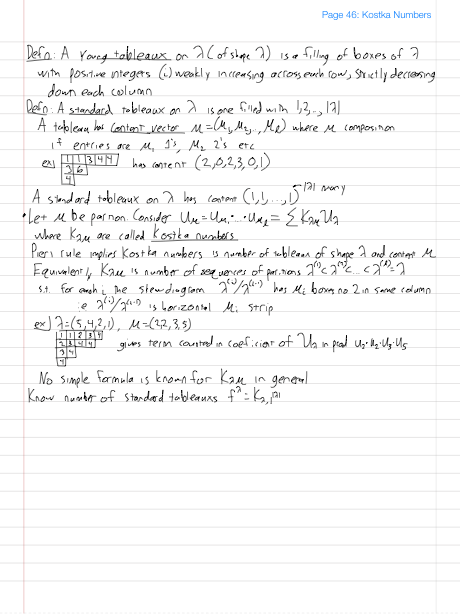 Page 46: Kostka Numbers
Defn: A Young tableaux on λ (of shape λ) is a filling of boxes of λ
with positive integers (i) weakly increasing across each row, strictly decreasing
down each column
Defn: A standard tableaux on λ is one filled with 1,2,..,|λ|
A tableau has content vector μ=(μ₁,μ₂,..,μ_ℓ) where μ composition
if entries are μ₁ 1's, μ₂ 2's etc
ex) 1 1 3 4 4 has content (2,0,2,3,0,1)
3 6
4
|λ| many
A standard tableaux on λ has content (1,1,...,1)
• Let μ be partition. Consider U_μ = U_μ₁·...·U_μ_ℓ = Σ K_λμ U_λ
where K_λμ are called Kostka numbers
Pieri rule implies Kostka numbers is number of tableaux of shape λ and content μ
Equivalently, K_λμ is number of sequences of partitions λ⁽¹⁾ ⊂ λ⁽²⁾ ⊂ ... ⊂ λ⁽ℓ⁾ = λ
s.t. for each i the skew diagram λ⁽ⁱ⁾/λ⁽ⁱ⁻¹⁾ has μᵢ boxes no 2 in same column
ie λ⁽ⁱ⁾/λ⁽ⁱ⁻¹⁾ is horizontal μᵢ strip
ex) λ=(5,4,2,1), μ=(2,2,3,5)
1 1 2 3 4
2 3 4 4 gives term counted in coeficient of U_λ in prod U₂·U₂·U₃·U₅
3 4
4
No simple formula is known for K_λμ in general
Know number of standard tableauxs f^λ = K_λ,1^|λ|